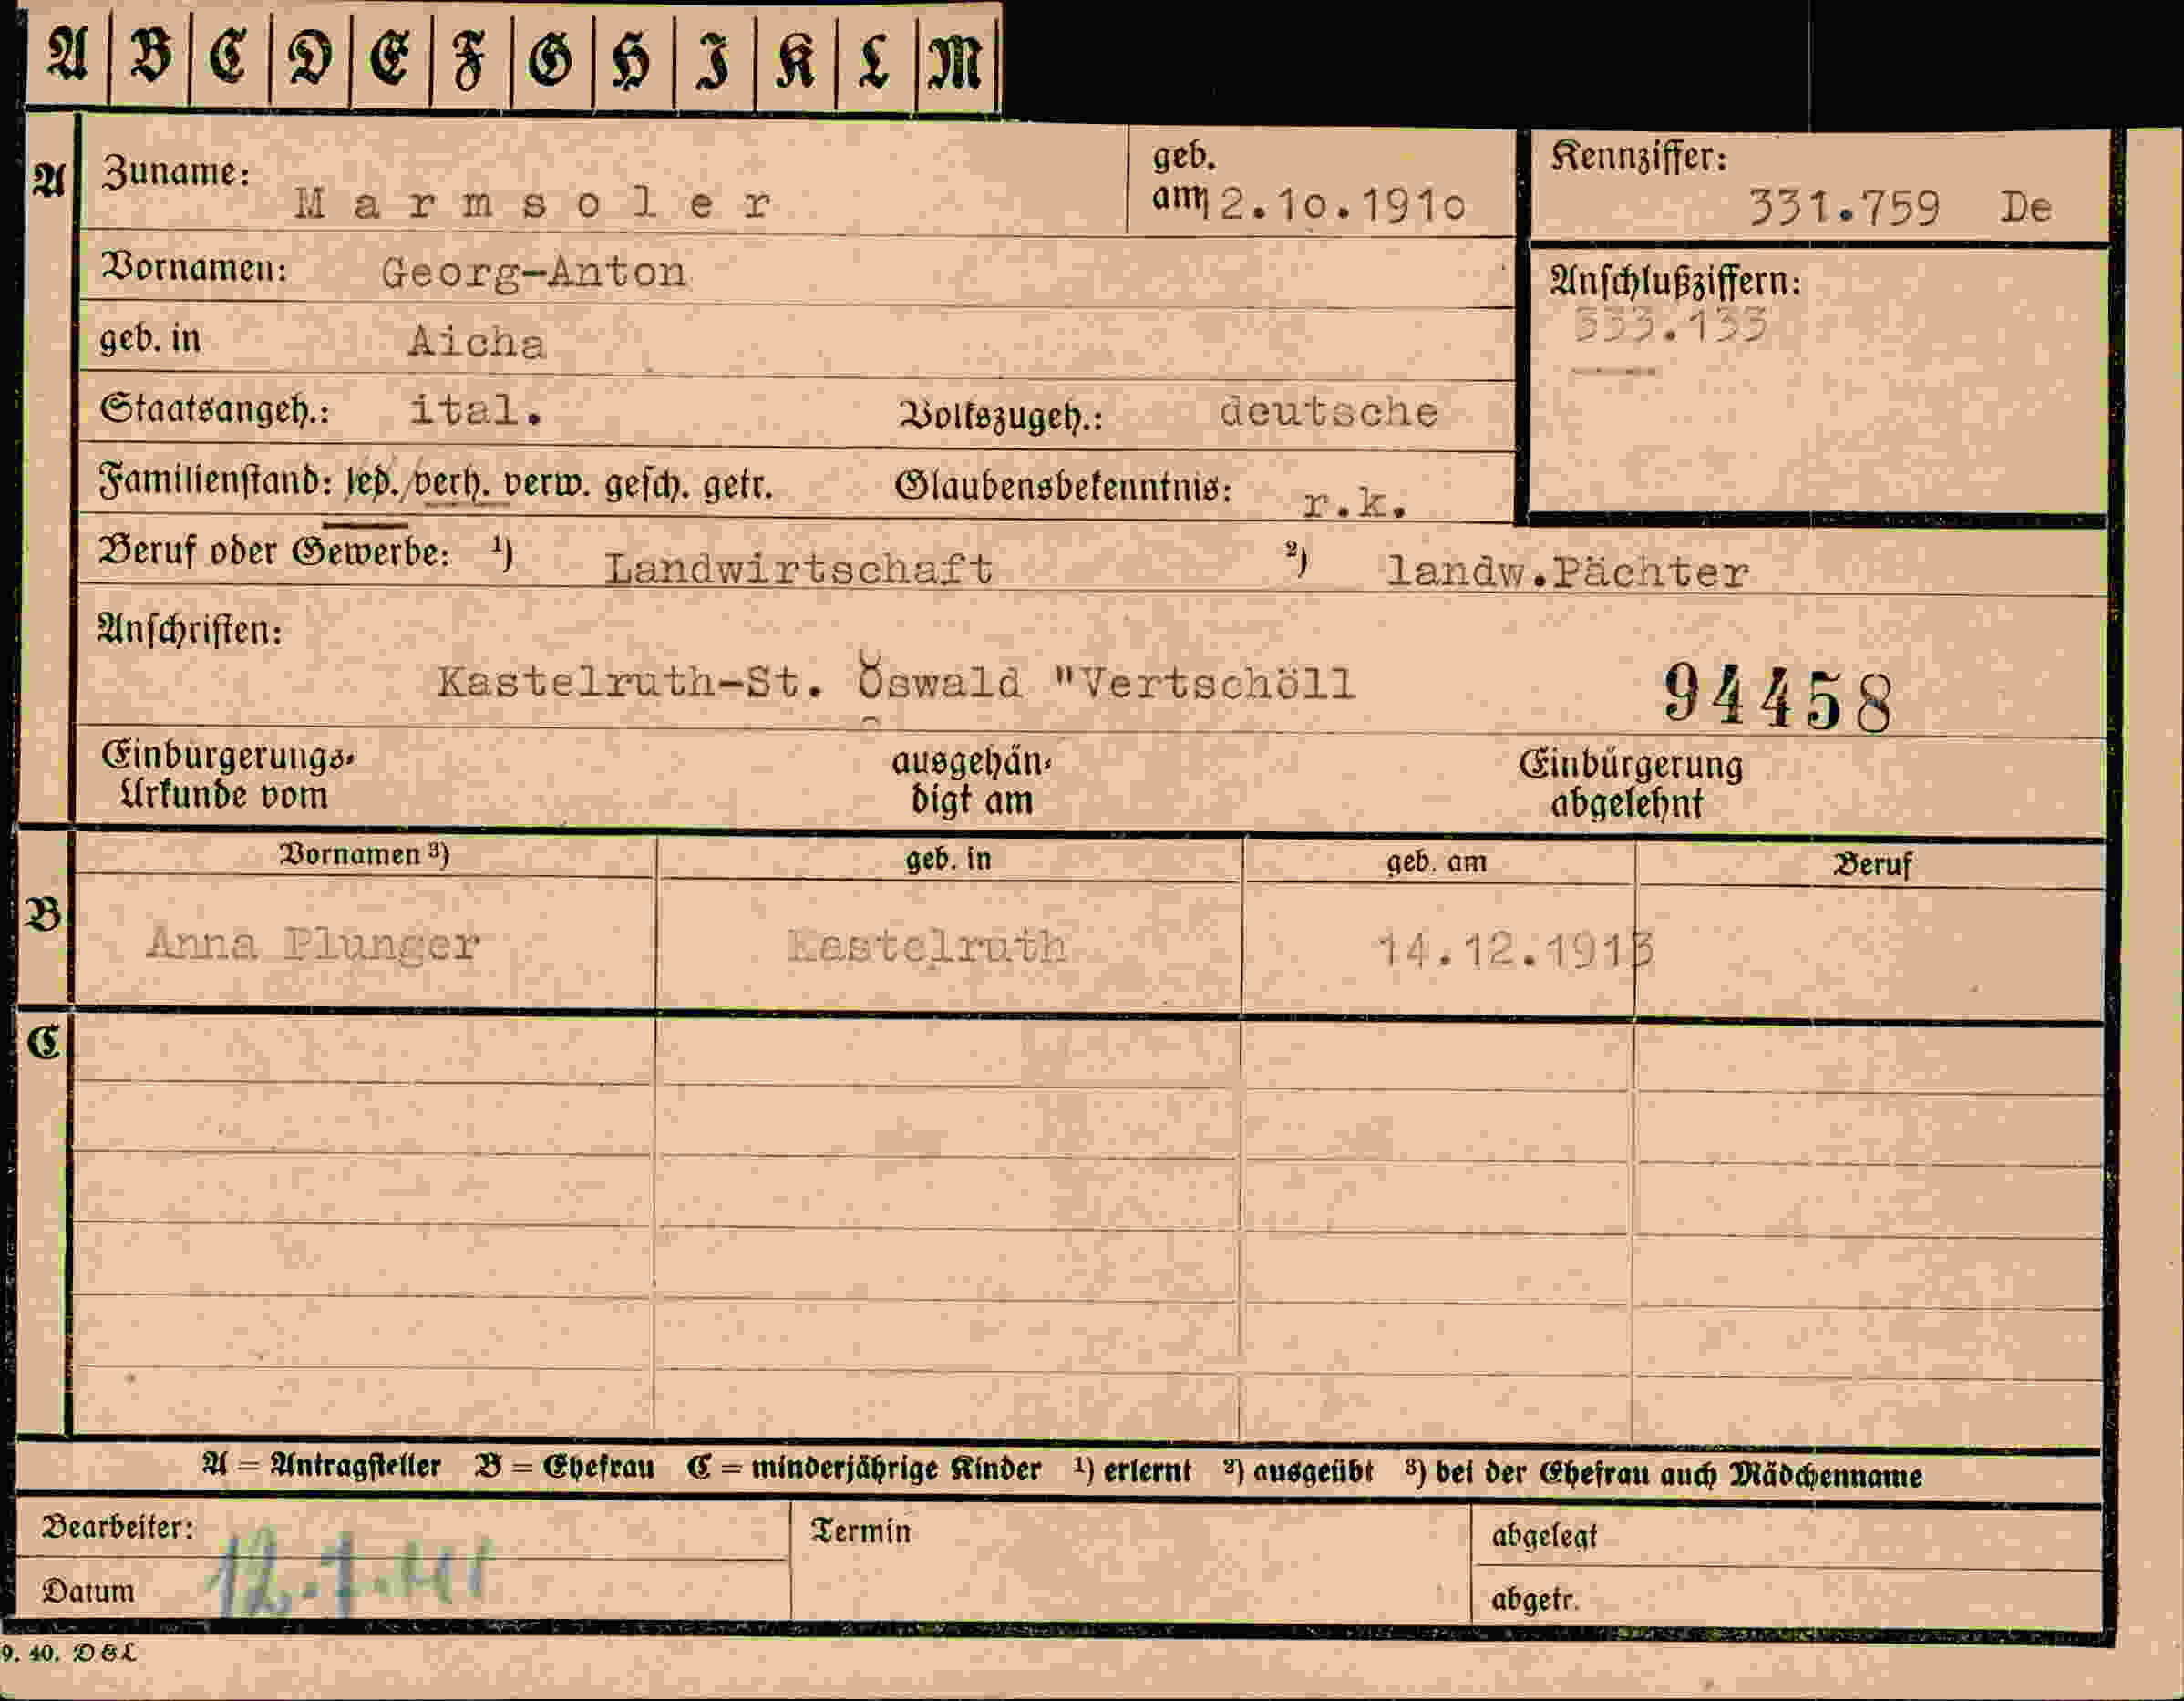 A B C D E F G H I K L M
A Zuname: Marmsoler geb. am 2.10.1910 Kennziffer: 331.759 De
Vornamen: Georg-Anton Anschlußziffern:
333.133
geb. in Aicha
Staatsangeh.: ital. Volkszugeh.: deutsche
Familienstand: led./verh. verw. gesch. getr. Glaubensbekenntnis: r.k.
Beruf oder Gewerbe: ¹) Landwirtschaft ²) landw.Pächter
Anschriften:
Kastelruth-St. Oswald "Vertschöll 94458
Einbürgerungs- ausgehän- Einbürgerung
Urkunde vom digt am abgelehnt
Vornamen ³) geb. in geb. am Beruf
B Anna Plunger Kastelruth 14.12.1913
C
A = Antragsteller B = Ehefrau C = minderjährige Kinder ¹) erlernt ²) ausgeübt ³) bei der Ehefrau auch Mädchenname
Bearbeiter: Termin abgelegt
Datum abgetr.
9. 40. DGL